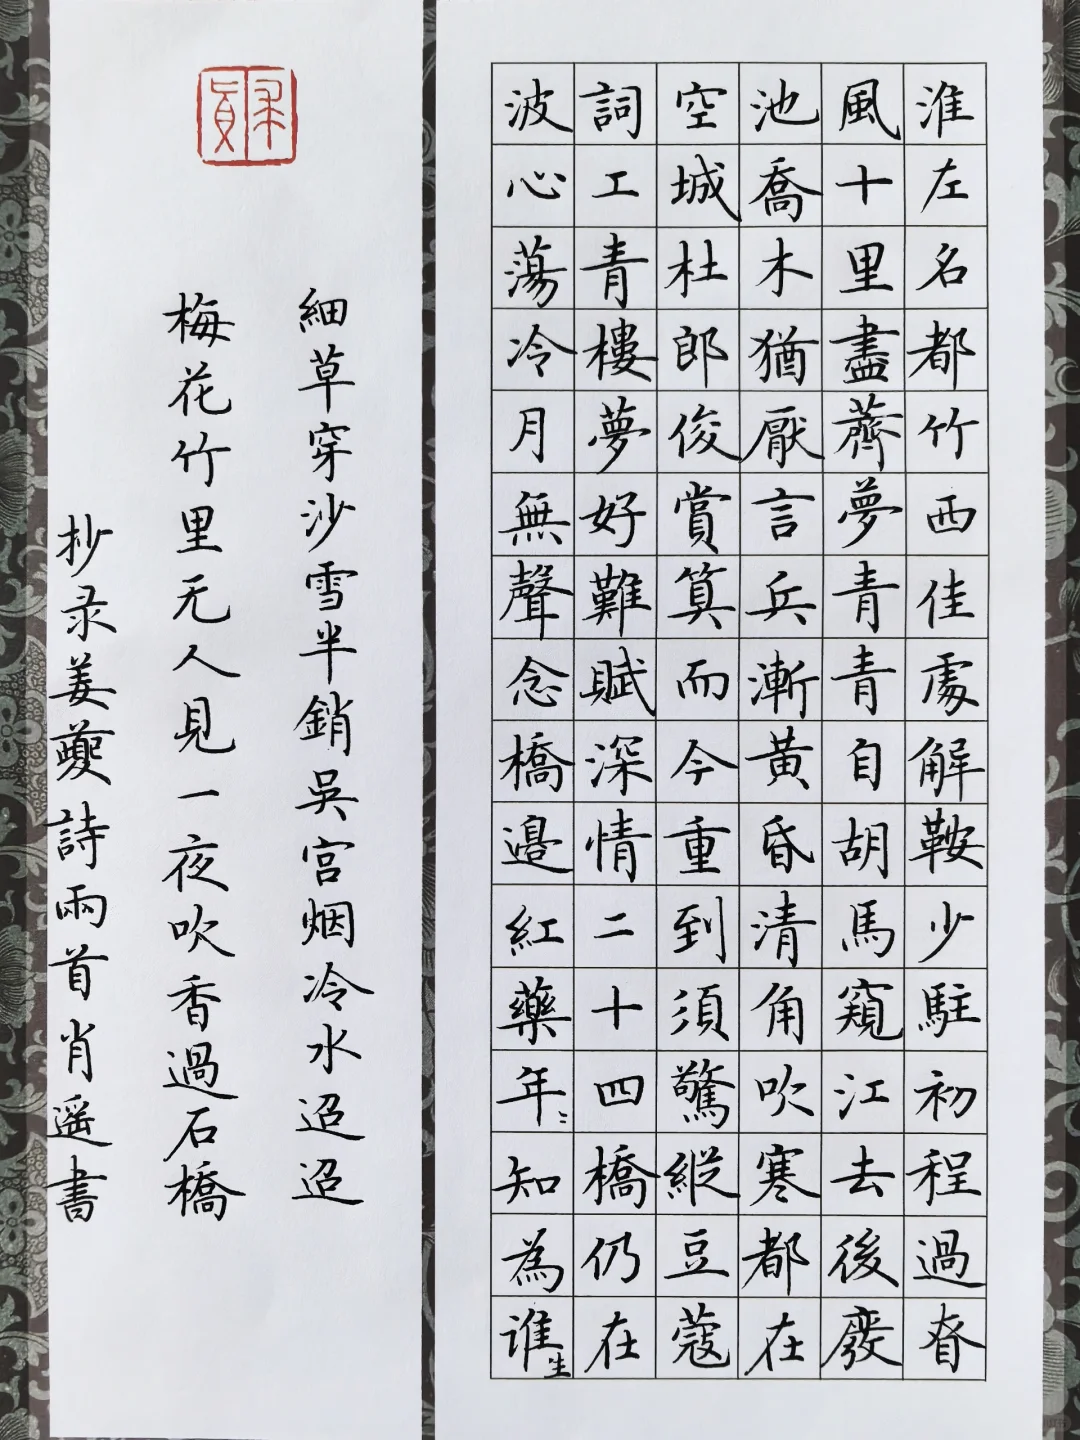 淮左名都竹西佳處解鞍少駐初程過春
風十里盡薺夢青青自胡馬窺江去後廢
池喬木猶厭言兵漸黃昏清角吹寒都在
空城杜郎俊賞算而今重到須驚縱豆蔻
詞工青樓夢好難賦深情二十四橋仍在
波心蕩冷月無聲念橋邊紅藥年〻知為谁生
細草穿沙雪半銷吳宮烟冷水迢迢
梅花竹里无人見一夜吹香過石橋
抄录姜夔詩兩首肖遥書